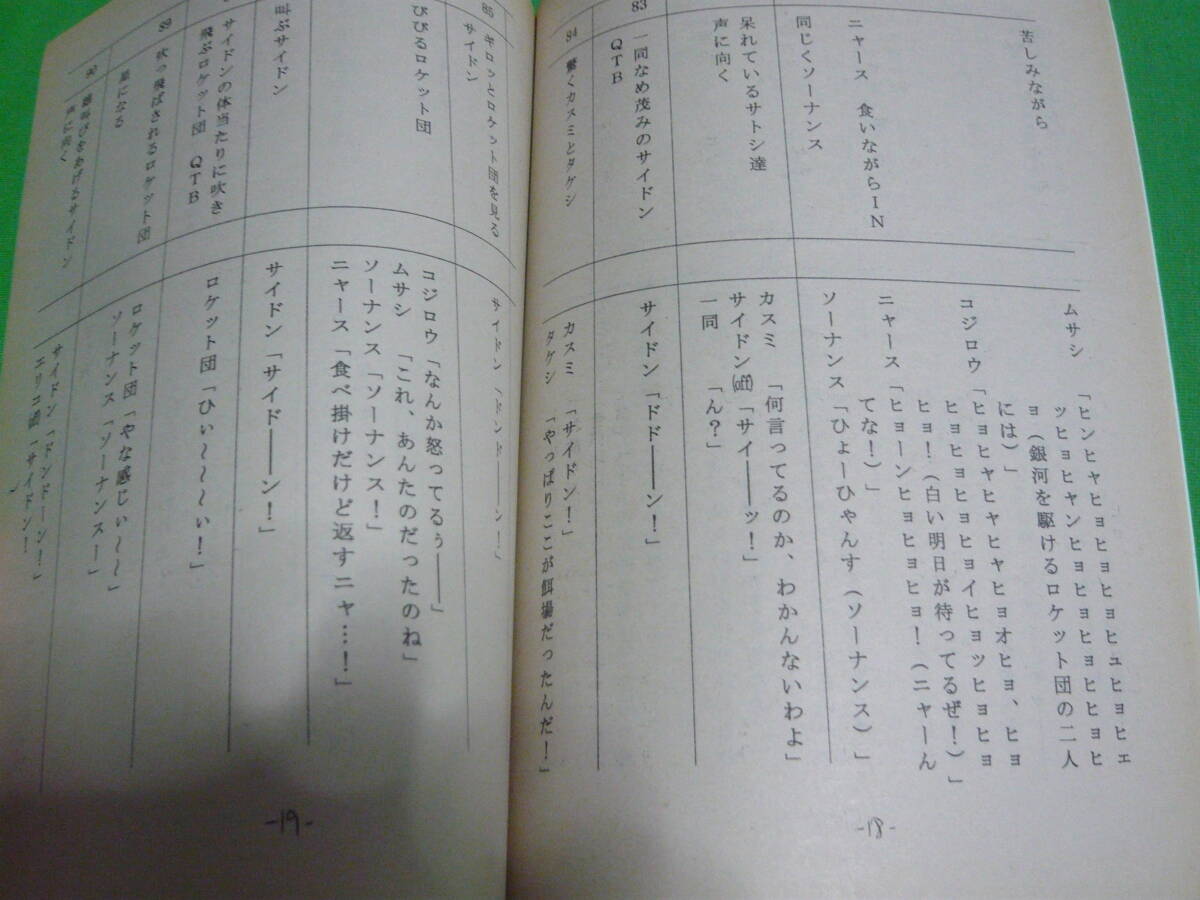 苦しみながら
ムサシ
「ヒンヒャヒョヒョヒョヒュヒョヒェ
ッヒョヒャンヒョヒョヒョヒヒョヒ
ョ（銀河を駆けるロケット団の二人
には）」
コジロウ「ヒョヒャヒャヒャヒョオヒョ、ヒョ
ヒョヒョヒョヒョイヒョッヒョヒョ
ヒョ！（白い明日が待ってるぜ！）」
ニャース　食いながらＩＮ
ニャース「ヒョーンヒョヒョヒョ！（ニャーん
てな！）」
同じくソーナンス
ソーナンス「ひょーひゃんす（ソーナンス）」
83
呆れているサトシ達
声に向く
カスミ　「何言ってるのか、わかんないわよ」
サイドン(off)「サイーッ！」
一同　「ん？」
一同なめ茂みのサイドン
ＱＴＢ
サイドン「ドドーーン！」
84
驚くカスミとタケシ
カスミ　「サイドン！」
タケシ　「やっぱりここが餌場だったんだ！」
-18-
85
ギロッとロケット団を見る
サイドン
サイドン「ドンドーーン！」
びびるロケット団
コジロウ「なんか怒ってるぅーー」
ムサシ　「これ、あんたのだったのね」
ソーナンス「ソーナンス！」
ニャース「食べ掛けだけど返すニャ…！」
叫ぶサイドン
サイドン「サイドーーン！」
サイドンの体当たりに吹き
飛ぶロケット団　ＱＴＢ
ロケット団「ひぃ～～～い！」
89
吹っ飛ばされるロケット団
星になる
ロケット団「やな感じぃ～～」
ソーナンス「ソーナンスー」
90
雄叫びをあげるサイドン
声に向く
サイドン「ドンドーン！」
エリコ「サイドン！
-19-